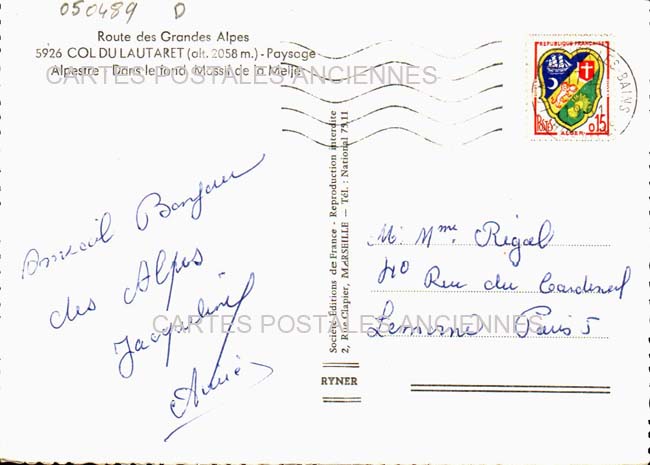 050489 D
Route des Grandes Alpes
5926 COL DU LAUTARET (alt. 2058 m.) - Paysage
Alpestre - Dans le fond Massif de la Meije
CARTES POSTALES ANCIENNES
REPUBLIQUE FRANÇAISE
POSTES 0,15
ALGER
BAINS
Amical Bonjour
des Alpes
Jacqueline
Aimée
Société Editions de France - Reproduction interdite
2, Rue Clapier, MARSEILLE - Tél. : National 75.11
RYNER
M. Mme Rigal
40 Rue du Cardinal
Lemoine Paris 5
CARTES POSTALES ANCIENNES